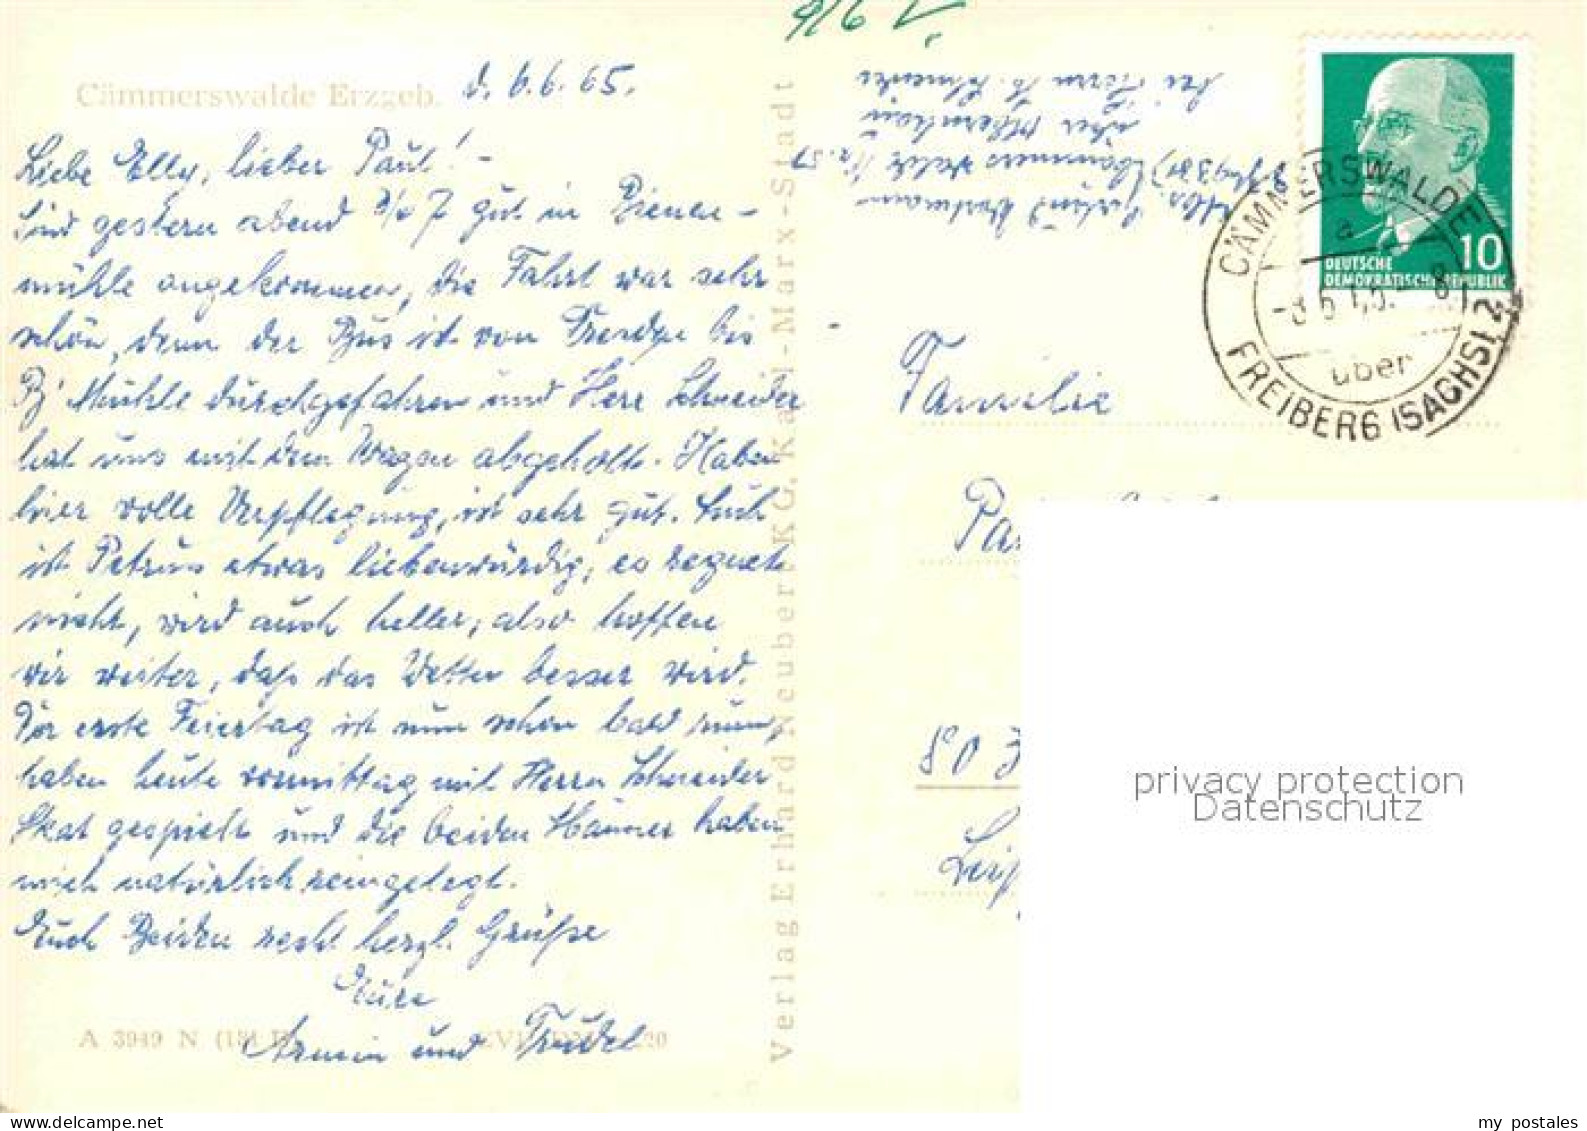 Cämmerswalde Erzgeb.
d. 6.6.65.
Liebe Elly, lieber Paul! -
Sind gestern abend 3/4 7 gut in Bienen-
mühle angekommen, die Fahrt war sehr
schön, denn der Bus ist von Dresden bis
B' Mühle durchgefahren und Herr Schneider
hat uns mit dem Wagen abgeholt. Haben
hier volle Verpflegung, ist sehr gut. Auch
ist Petrus etwas liebenswürdig, es regnet
nicht, wird auch heller, also hoffen
wir weiter, daß das Wetter besser wird.
Der erste Feiertag ist nun schon bald rum,
haben heute vormittag mit Herrn Schneider
Skat gespielt und die beiden Männer haben
mich natürlich reingelegt.
Euch Beiden recht herzl. Grüße
Eure
Armin und Trudel
A 3949 N
Verlag Erhard Neubert KG. Karl-Marx-Stadt
9/6
Abs.
9381) Cämmerswalde Nr. 51
über Olbernhau
bei Herrn Schneider
DEUTSCHE
DEMOKRATISCHE REPUBLIK
10
CÄMMERSWALDE
a
-8.6.65.-8
über
FREIBERG (SACHS) 2
Familie
803
privacy protection
Datenschutz
my postales